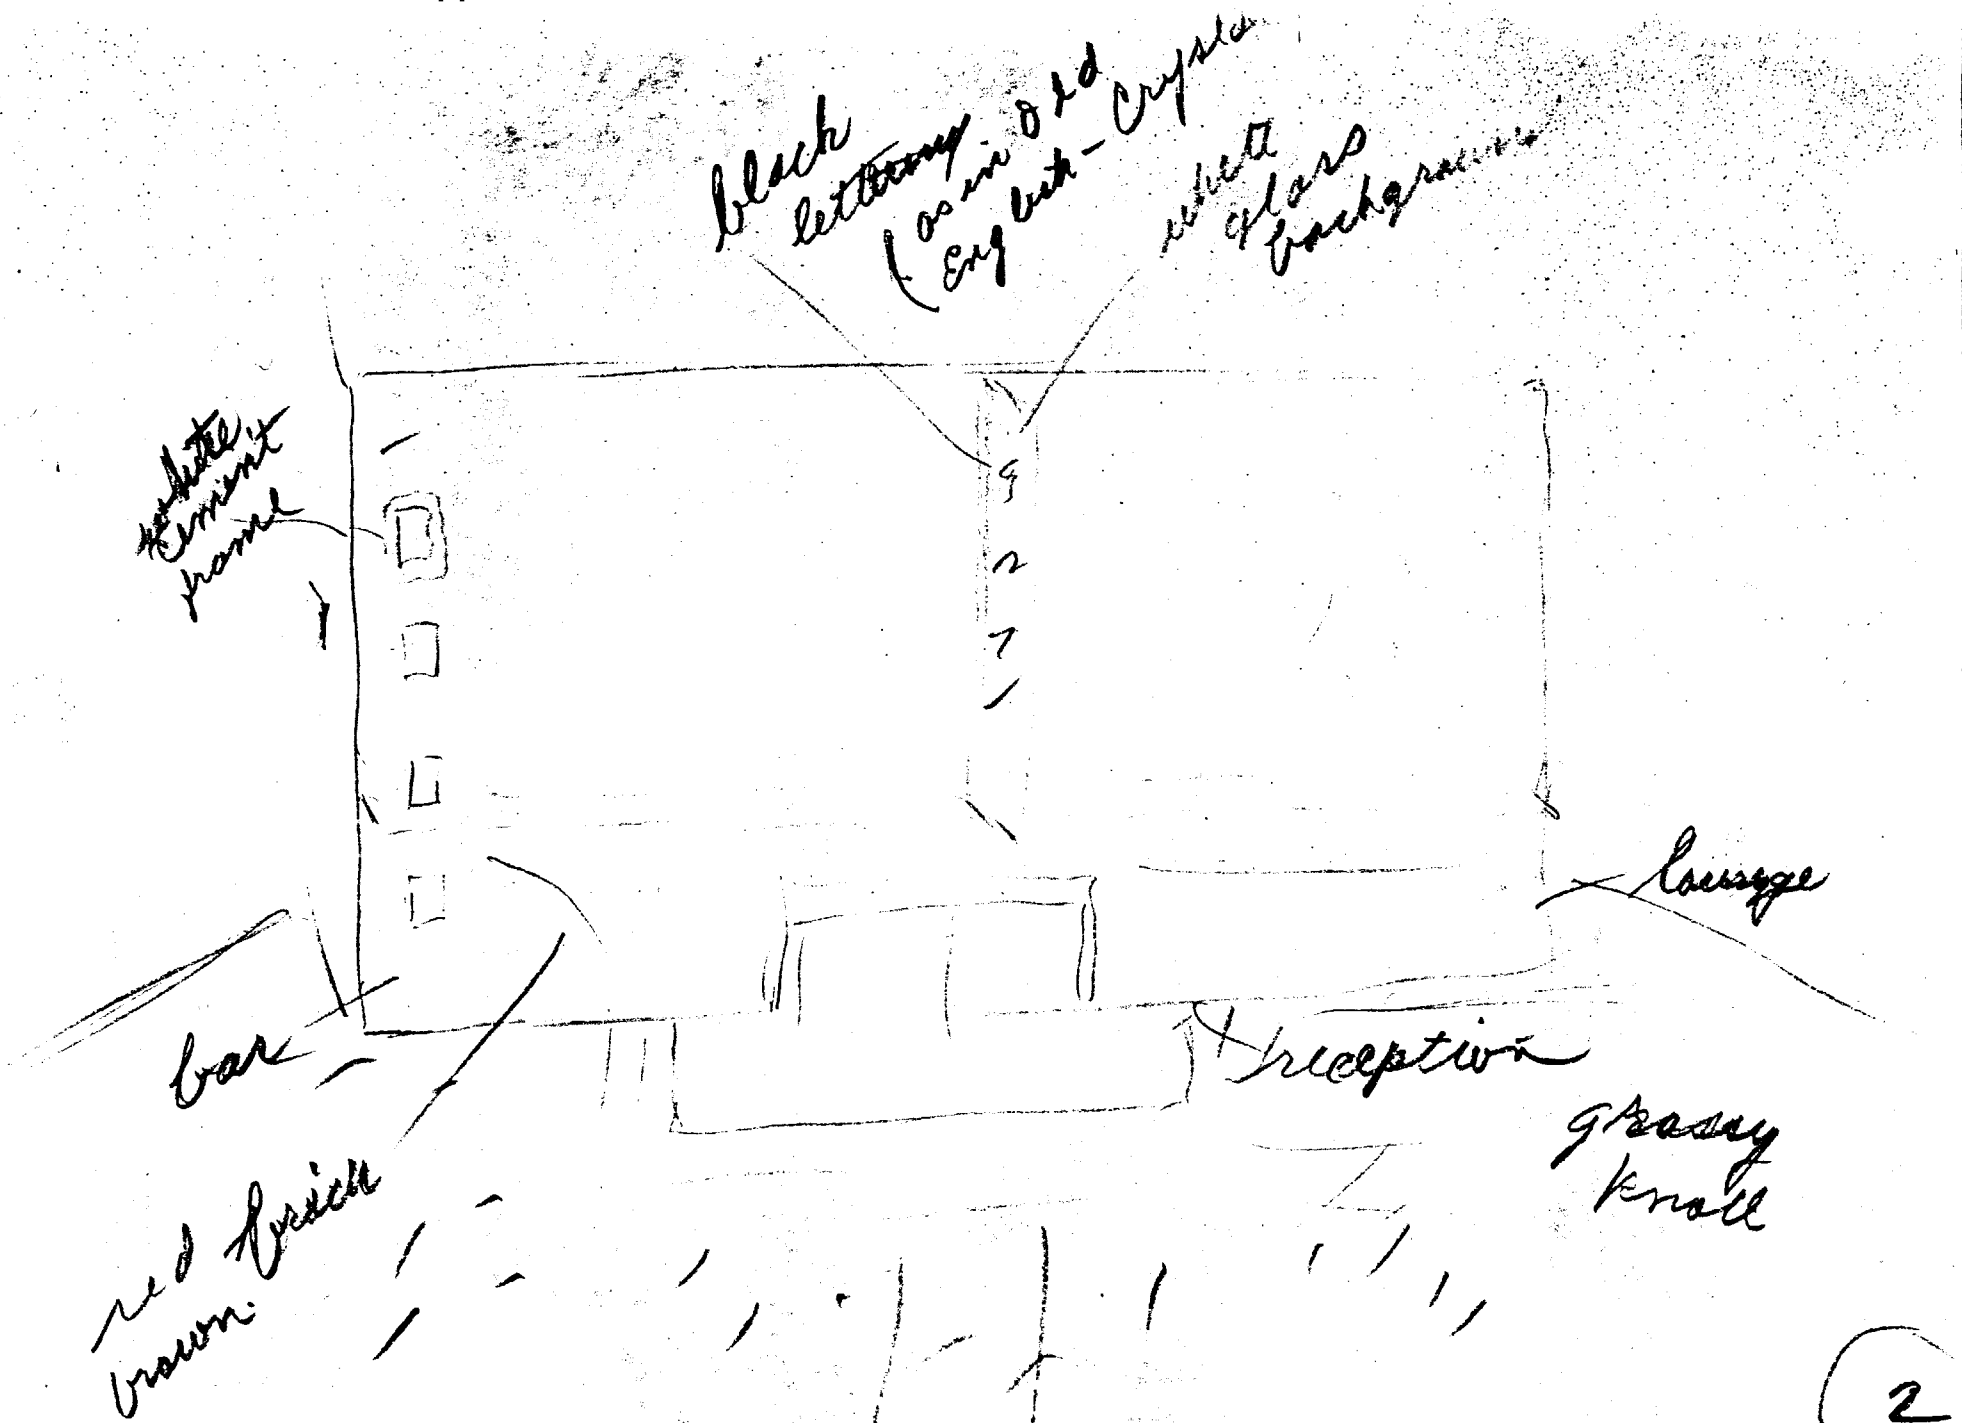 black
lettering
(as in Old
English - Crysta
white
glass
background
white
cement
frame
9
2
7
lounge
bar
reception
grassy
knoll
red brick
brown
2